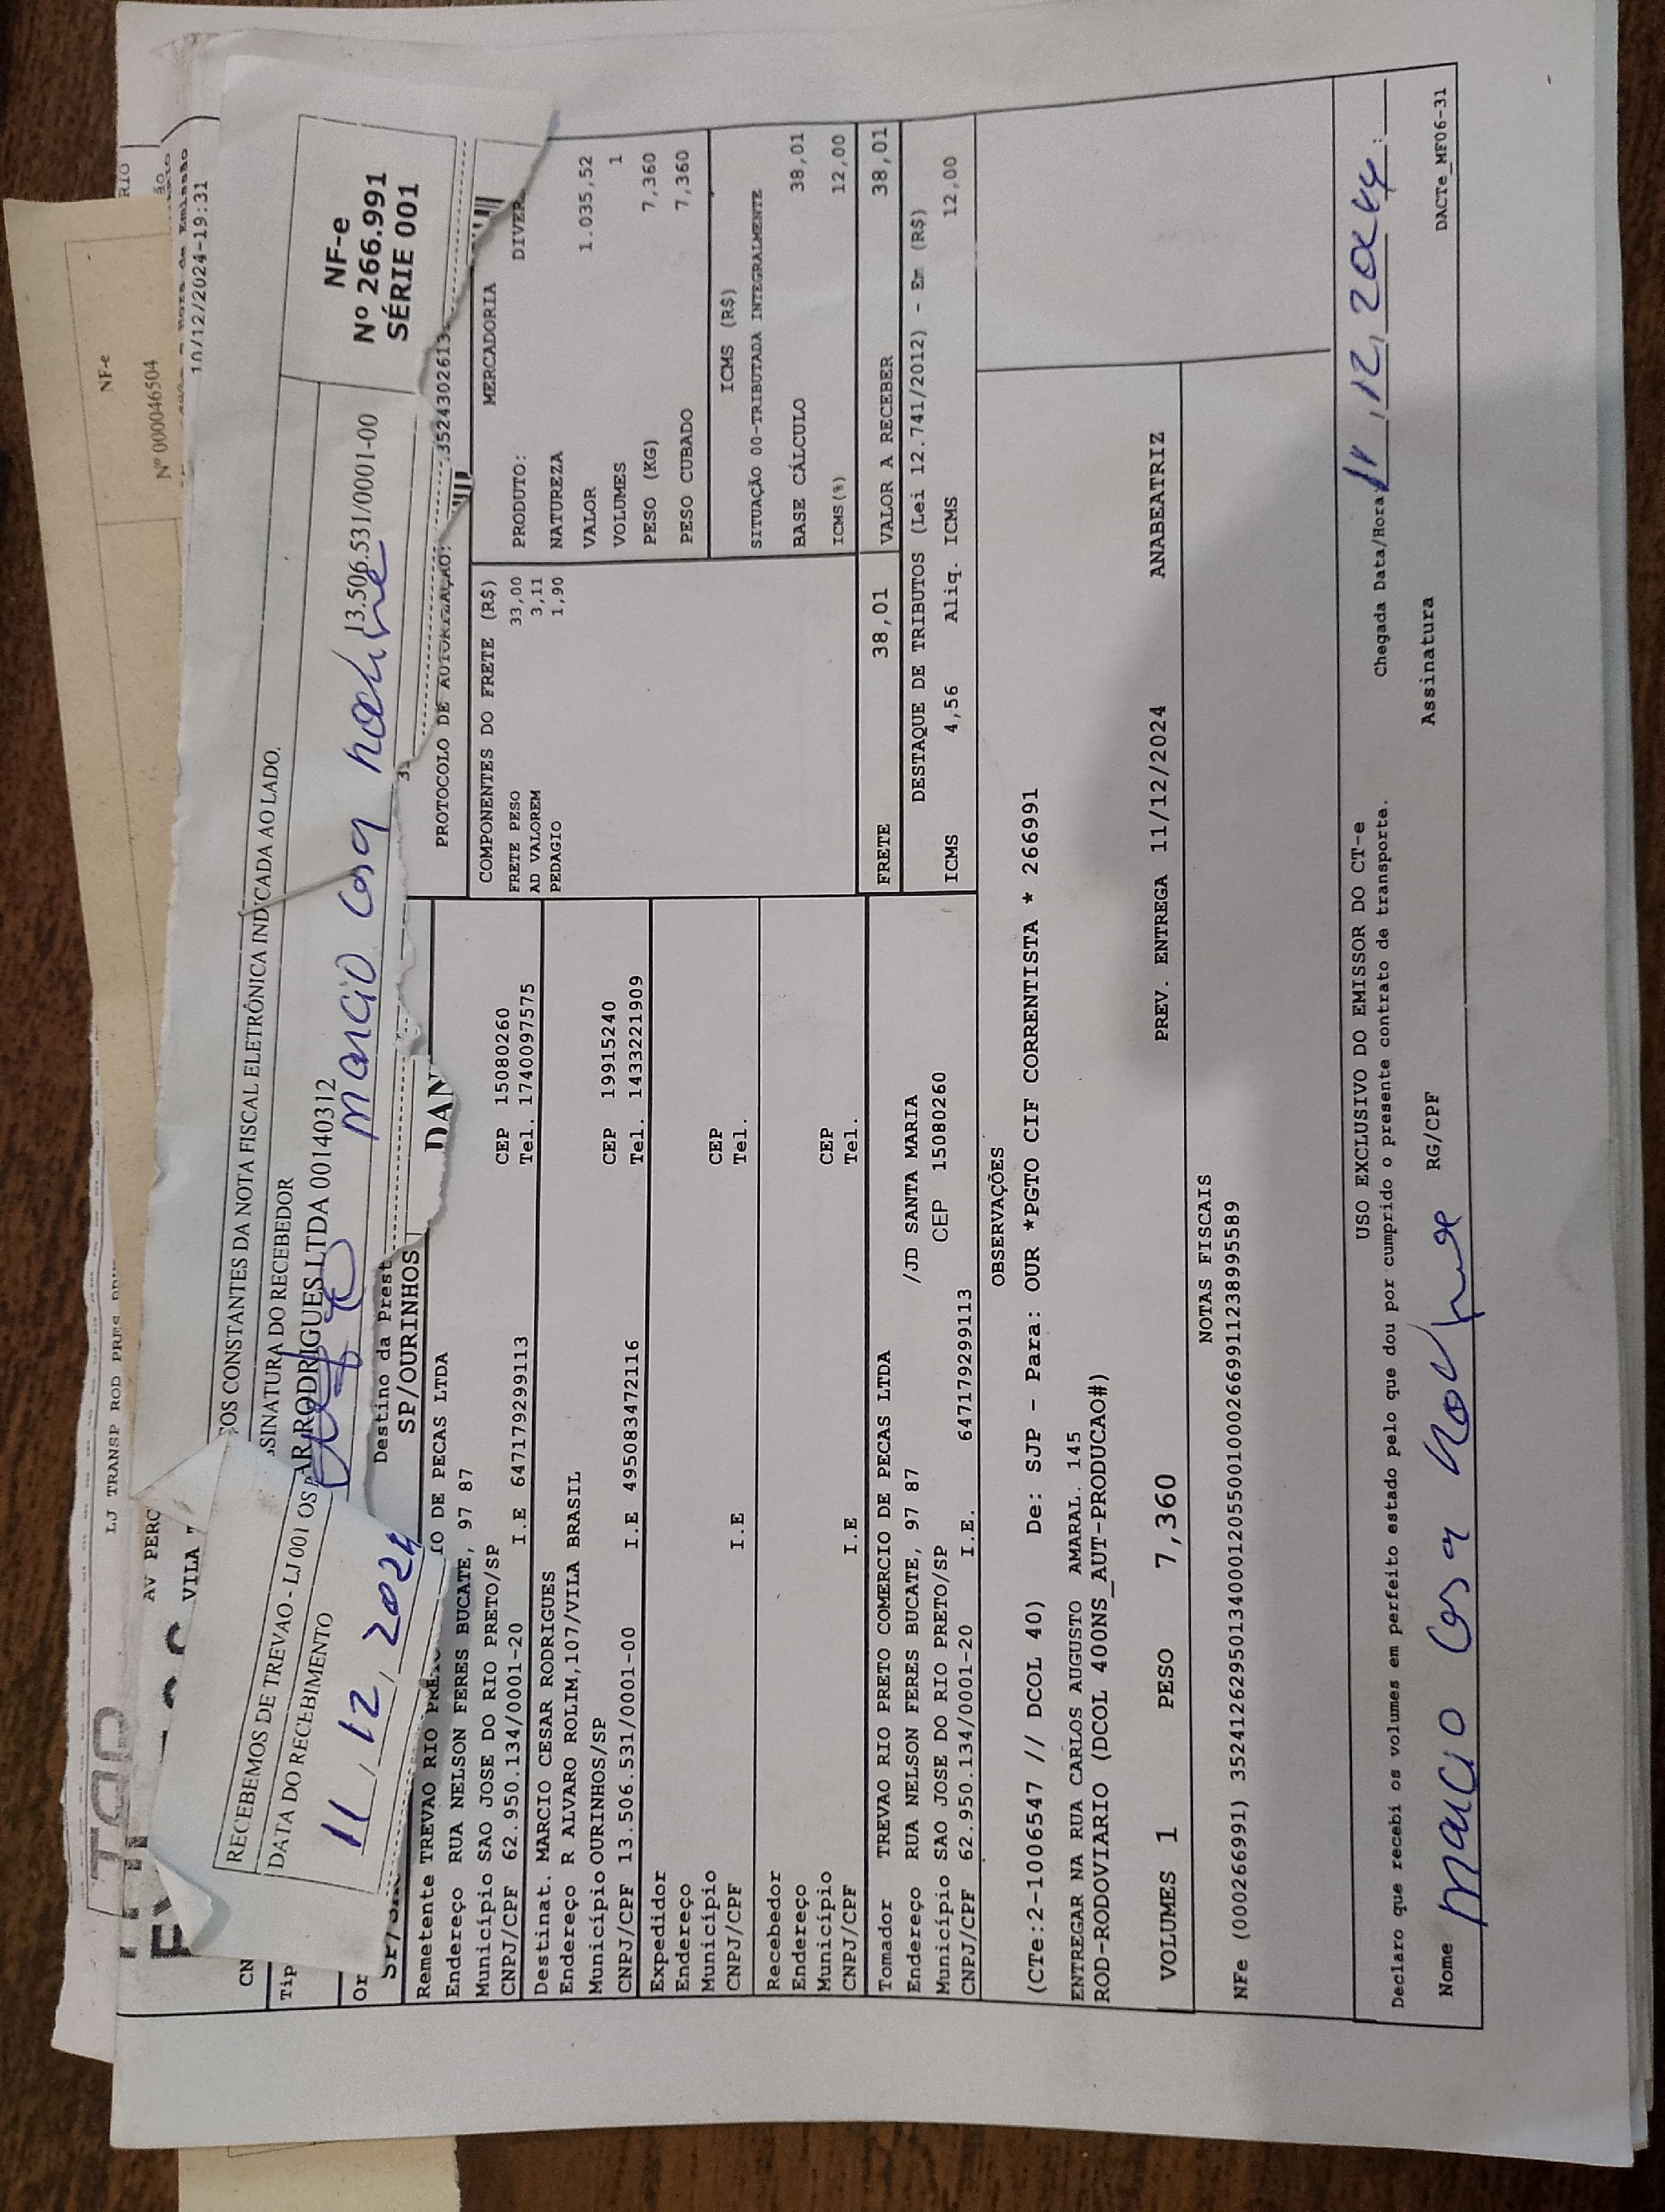 RIO
NF-e
Nº 000046504
10/12/2024-19:31
LJ TRANSP ROD PRES
AV PERC
VILA
OS CONSTANTES DA NOTA FISCAL ELETRÔNICA INDICADA AO LADO.
RECEBEMOS DE TREVAO - LJ 001 OS
DATA DO RECEBIMENTO
SSINATURA DO RECEBEDOR
AR RODRIGUES LTDA 00140312
13.506.531/0001-00
11/12/2024
Marcio Cesar
NF-e
Nº 266.991
SÉRIE 001
CN
Tip
Or
Destino da Prest
SP/OURINHOS
DAN
PROTOCOLO DE AUTORIZAÇÃO: 3524302613
Remetente TREVAO RIO PRETO IO DE PECAS LTDA
Endereço RUA NELSON FERES BUCATE, 97 87
Município SAO JOSE DO RIO PRETO/SP CEP 15080260
CNPJ/CPF 62.950.134/0001-20 I.E 647179299113 Tel. 1740097575
Destinat. MARCIO CESAR RODRIGUES
Endereço R ALVARO ROLIM,107/VILA BRASIL
Município OURINHOS/SP CEP 19915240
CNPJ/CPF 13.506.531/0001-00 I.E 495083472116 Tel. 1433221909
Expedidor
Endereço
Município CEP
CNPJ/CPF I.E Tel.
Recebedor
Endereço
Município CEP
CNPJ/CPF I.E Tel.
Tomador TREVAO RIO PRETO COMERCIO DE PECAS LTDA
Endereço RUA NELSON FERES BUCATE, 97 87 /JD SANTA MARIA
Município SAO JOSE DO RIO PRETO/SP CEP 15080260
CNPJ/CPF 62.950.134/0001-20 I.E. 647179299113
COMPONENTES DO FRETE (R$)
FRETE PESO 33,00
AD VALOREM 3,11
PEDAGIO 1,90
MERCADORIA
PRODUTO: DIVER
NATUREZA
VALOR 1.035,52
VOLUMES 1
PESO (KG) 7,360
PESO CUBADO 7,360
ICMS (R$)
SITUAÇÃO 00-TRIBUTADA INTEGRALMENTE
BASE CÁLCULO 38,01
ICMS(%) 12,00
FRETE 38,01 VALOR A RECEBER 38,01
DESTAQUE DE TRIBUTOS (Lei 12.741/2012) - Em (R$)
ICMS 4,56 Aliq. ICMS 12,00
OBSERVAÇÕES
(CTe:2-1006547 // DCOL 40) De: SJP - Para: OUR *PGTO CIF CORRENTISTA * 266991
ENTREGAR NA RUA CARLOS AUGUSTO AMARAL. 145
ROD-RODOVIARIO (DCOL 400NS_AUT-PRODUCAO#)
VOLUMES 1 PESO 7,360 PREV. ENTREGA 11/12/2024 ANABEATRIZ
NOTAS FISCAIS
NFe (000266991) 35241262950134000120550010002669911238995589
USO EXCLUSIVO DO EMISSOR DO CT-e
Declaro que recebi os volumes em perfeito estado pelo que dou por cumprido o presente contrato de transporte. Chegada Data/Hora 11/12/2024 :
Nome Marcio RG/CPF Assinatura
DACTe_MF06-31